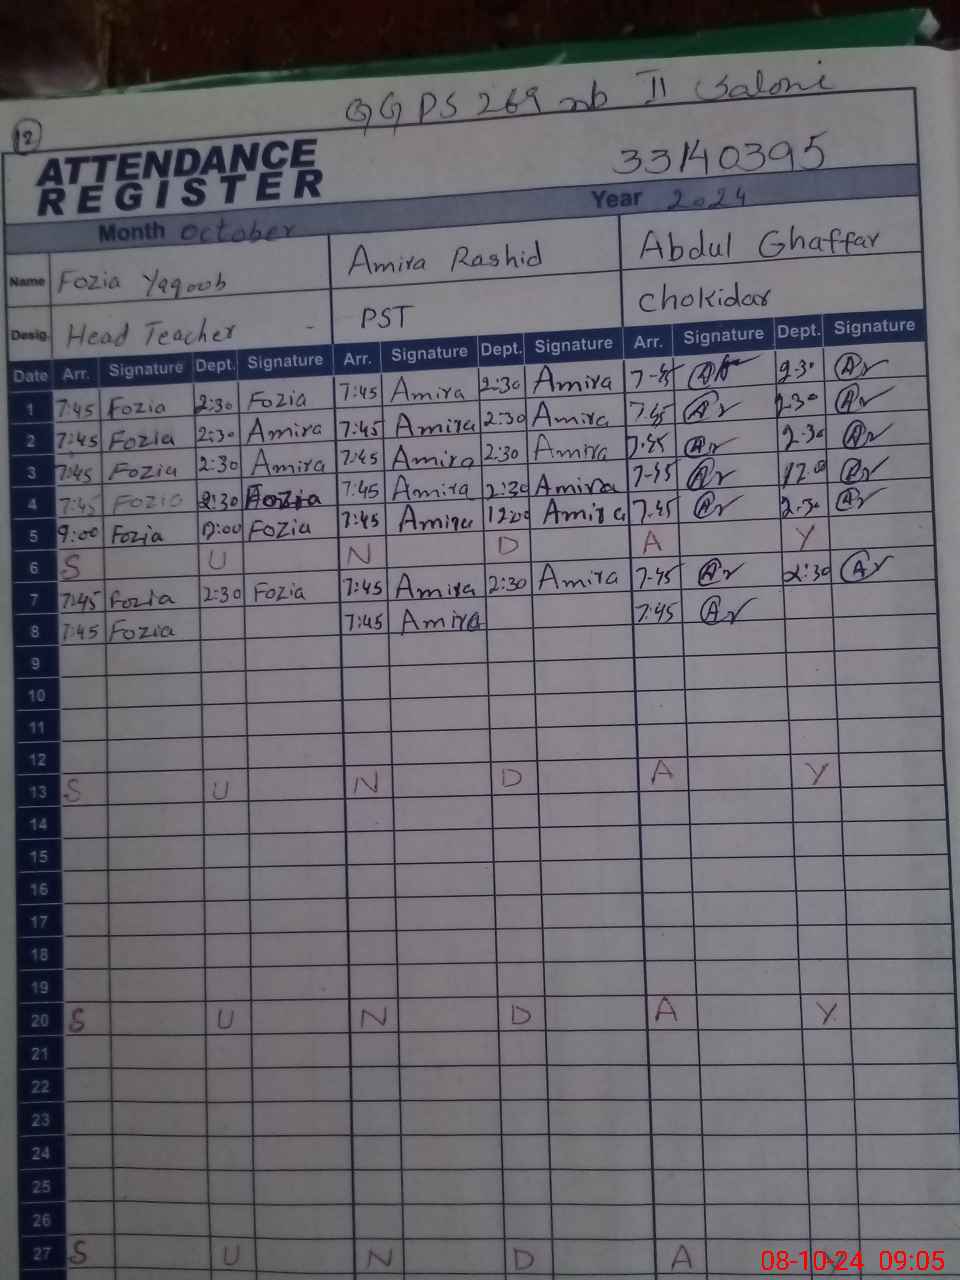 GGPS 269 rb II Saloni
12
ATTENDANCE
REGISTER
33140395
Month October Year 2024
Name Fozia Yaqoob Amira Rashid Abdul Ghaffar
Desig. Head Teacher - PST Chokidar
Date Arr. Signature Dept. Signature Arr. Signature Dept. Signature Arr. Signature Dept. Signature
1 7:45 Fozia 2:30 Fozia 7:45 Amira 2:30 Amira 7-45 2-30
2 7:45 Fozia 2:30 Amira 7:45 Amira 2:30 Amira 7.45 2-30
3 7:45 Fozia 2:30 Amira 7:45 Amira 2:30 Amira 7.45 2-30
4 7:45 Fozia 2:30 Fozia 7:45 Amira 2:30 Amira 7-45 12.00
5 9:00 Fozia 12:00 Fozia 7:45 Amira 12:00 Amira 7.45 2-30
6 S U N D A Y
7 7:45 Fozia 2:30 Fozia 7:45 Amira 2:30 Amira 7-45 2:30
8 7:45 Fozia 7:45 Amira 7:45
9
10
11
12
13 S U N D A Y
14
15
16
17
18
19
20 S U N D A Y
21
22
23
24
25
26
27 S U N D A Y
08-10-24 09:05